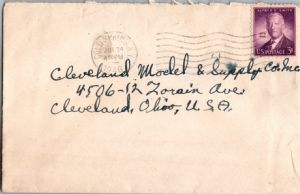 ALFRED E. SMITH
U.S. POSTAGE 3¢
Cleveland Model & Supply Co. Inc
4506-12 Lorain Ave
Cleveland, Ohio, U.S.A.